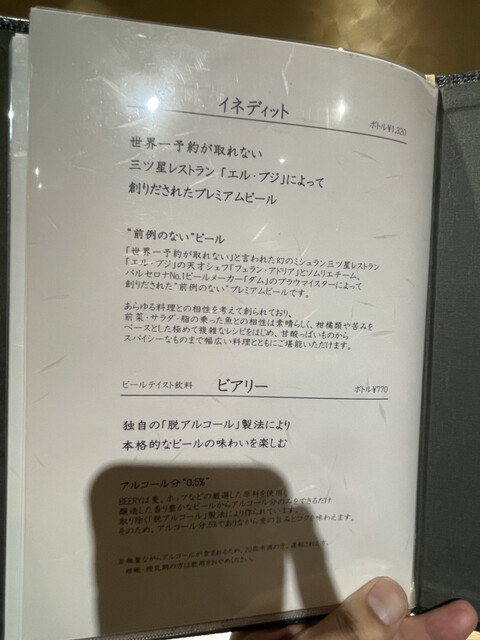 イネディット
ボトル¥1,320
世界一予約が取れない
三ツ星レストラン「エル・ブジ」によって
創りだされたプレミアムビール
“前例のない”ビール
「世界一予約が取れない」と言われた幻のミシュラン三ツ星レストラン
「エル・ブジ」の天才シェフ「フェラン・アドリア」とソムリエチーム、
バルセロナNo.1ビールメーカー「ダム」のブラウマイスターによって
創りだされた“前例のない”プレミアムビールです。
あらゆる料理との相性を考えて創られており、
前菜・サラダ・脂の乗った魚との相性は素晴らしく、柑橘類や苦みを
ベースとした極めて複雑なレシピをはじめ、甘酸っぱいものから
スパイシーなものまで幅広い料理とともにご堪能いただけます。
ビールテイスト飲料 ビアリー ボトル¥770
独自の「脱アルコール」製法により
本格的なビールの味わいを楽しむ
アルコール分“0.5%”
BEERYは麦、ホップなどの厳選した原料を使用し
醸造した香り豊かなビールからアルコール分のみをできるだけ
取り除く「脱アルコール」製法により作られています。
そのため、アルコール分.5%でありながら麦の旨みとコクを味わえます。
※微量ながらアルコールが含まれるため、20歳未満の方、運転される方、
妊娠・授乳期の方は飲用をおやめください。